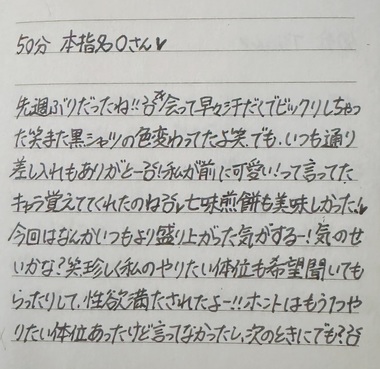 50分 本指名Oさん♥
先週ぶりだったね!!会って早々汗だくでビックリしちゃっ
た笑また黒シャツの色変わってたよ笑でも、いつも通り
差し入れもありがとー!私が前に可愛い!って言ってた
キャラ覚えててくれたのね♥七味煎餅も美味しかった!
今回はなんかいつもより盛り上がった気がするー!気のせ
いかな?笑珍しく私のやりたい体位も希望聞いても
らったりして、性欲満たされたよー!!ホントはもう1つや
りたい体位あったけど言ってなかったし、次のときにでも?